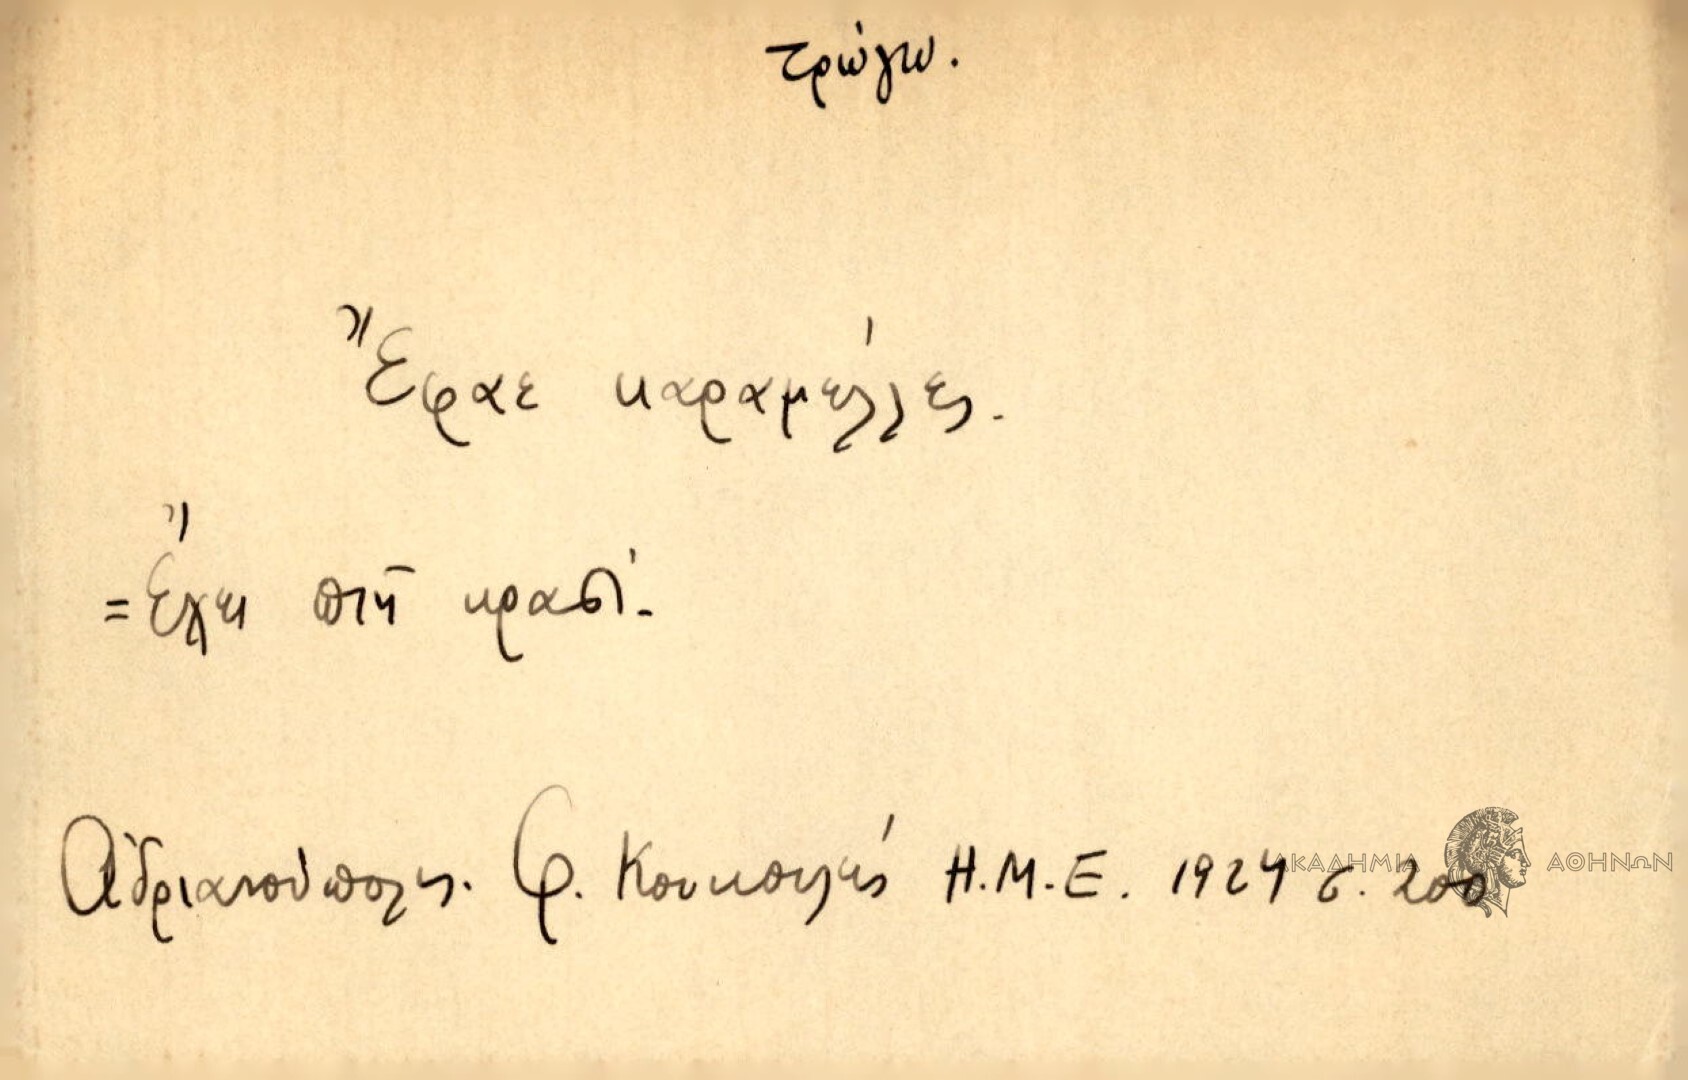 τρώγω.
Ἔφαε καραμέλλες.
=Ἔχει πιῆ κρασί.
Ἀδριανούπολις. Φ. Κουκουλές Η.Μ.Ε. 1924 σ. 200
ΑΚΑΔΗΜΙΑ ΑΘΗΝΩΝ